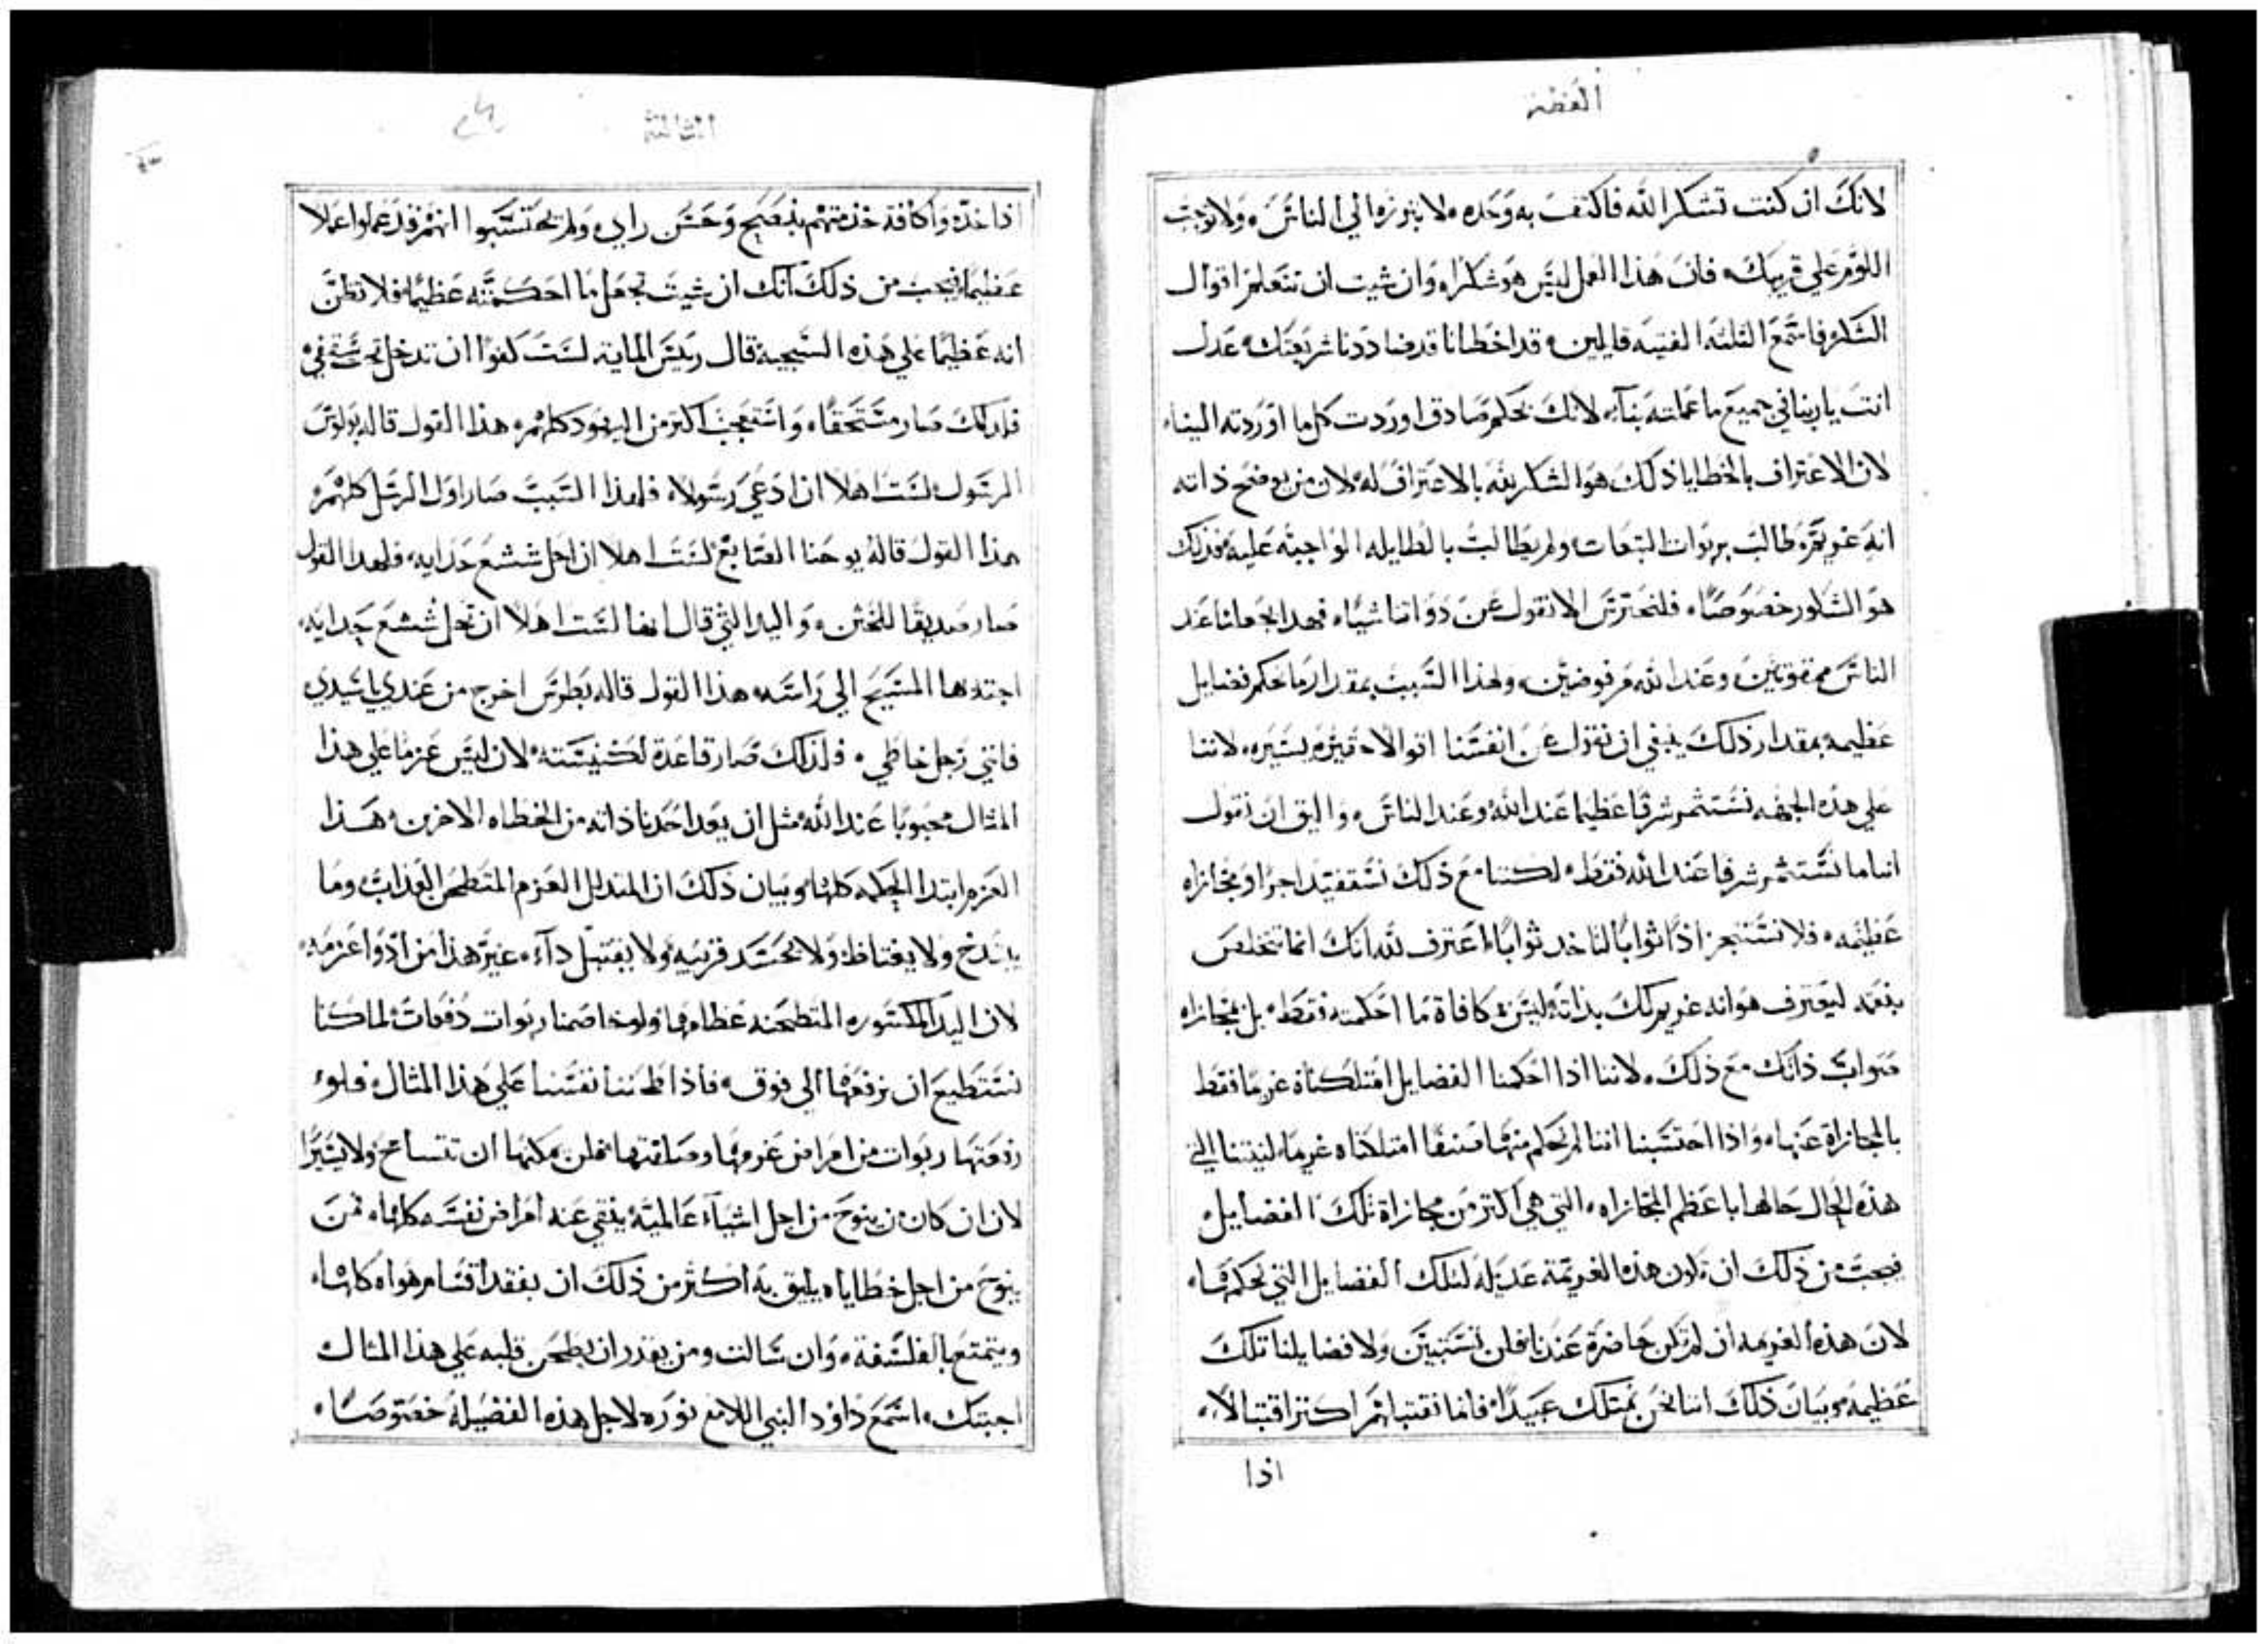 العضة
لانك ان كنت تشكر الله فاكتف به وحده ولا تبرزه الي الناس ولا توجب
اللوم علي قريبك فان هذا العمل ليس هو شكراً وان شيت ان تتعلم اقوال
الشكر فاستمع الثلثه الفتيه قايلين قد اخطانا قد ضاددنا شريعتك عدل
انت يا ربنا في جميع ما عملته بنا لانك بحكم صادق اوردت كل ما اوردته الينا
لان الاعتراف بالخطايا ذلك هو الشكر لله بالاعتراف له لان من يوضح ذاته
انه غريم مطالب بربوات التبعات ولم يطالب بالطايله الواجبه عليه فذلك
هو الشكور خصوصاً فلنحترس الا نقول عن ذواتنا شياً فهذا يجعلنا عند
الناس ممقوتين وعند الله مرفوضين ولهذا السبب بمقدار ما نحكم فضايل
عظيمه بمقدار ذلك ينبغي ان نقول عن انفسنا اقوالا حقيره يسيره لاننا
علي هذه الجهه نستثمر شرفا عظيما عند الله وعند الناس واليق ان نقول
اننا ما نستثمر شرفا عند الله فقط لكننا مع ذلك نستفيد اجرا ومجازاه
عظيمه فلا تستنجز اذا ثوابا لتاخد ثوابا اعترف لله انك انما تتخلص
بنعمه ليعترف هو انه غريم لك بذاته ليس مكافاة ما احكمته فقط بل مجازاه
صواب ذاتك مع ذلك لاننا اذا احكمنا الفضايل امتلكناه غريما فقط
بالمجازاة عنها واذا احتسبنا اننا لم نحكم منها صنفا امتلكناه غريما لنيتنا التي
هذه الحال حالها باعظم المجازاه التي هي اكتر من مجازاة تلك الفضايل
فيجب من ذلك ان تكون هذه الغريمة عديله لتلك الفضايل التي نحكمها
لان هذه الغريمه ان لم تكن حاضرة عندنا فلن تستبين ولا فضايلنا تلك
عظيمه وبيان ذلك اننا نحن نمتلك عبيداً فانما نقتبلهم اكتر اقتبالاً
اذا
الثالثة
اذا خدموا كافة خدمتهم بنصح وحسن راي ولم يحتسبوا انهم قد عملوا عملا
عظيما فيجب من ذلك انك ان شيت تجعل ما احكمته عظيما فلا تظن
انه عظيما علي هذه السجية قال رييس الماية لست كفوا ان تدخل تحت سقفي
فلذلك صار مستحقا واستعجب اكتر من اليهود كلهم هذا القول قاله بولوس
الرسول لست اهلا ان ادعي رسولا فلهذا السبب صار اول الرسل كلهم
هذا القول قاله يوحنا الصابغ لست اهلا ان احل شسع حدايه فلهذا القول
صار صديقا للختن واليد التي قال انها لست اهلا ان تحل شسع حدايه
اجتذبها المسيح الي راسه هذا القول قاله بطرس اخرج من عندي يا سيدي
فانني رجل خاطي فلذلك صار قاعدة لكنيسته لان ليس عزما علي هذا
المثال محبوبا عند الله مثل ان يعد احدنا ذاته من الخطاه الاخرين هذا
العزم ابتدا الحكمه كلها وبيان ذلك ان المتذلل العزم المتطحن العذاب وما
يبذخ ولا يغتاظ ولا يحسد قريبه ولا يقتبل دآء غير هذا من ادوا عزمه
لان اليد المكسوره المتطحنه عظامها ولو خاصمنا ربوات دفعات لما كنا
نستطيع ان نرفعها الي فوق فاذا طحنا نفسنا علي هذا المثال فلو
زحمتها ربوات من امراض غرومها وصادمتها فلن يمكنها ان تتسامخ ولا يسيرا
لان ان كان من ينوح من اجل اشياء عالمية ينقي عنه امراض نفسه كلها فمن
ينوح من اجل خطاياه يليق به اكثر من ذلك ان يفقد اقسام هواه كلها
ويتمتع بالفلسفة وان سالت ومن يقدر ان يطحن قلبه علي هذا المثال
اجبتك اسمع داوود النبي اللامع نوره لاجل هذه الفضيله خصوصا